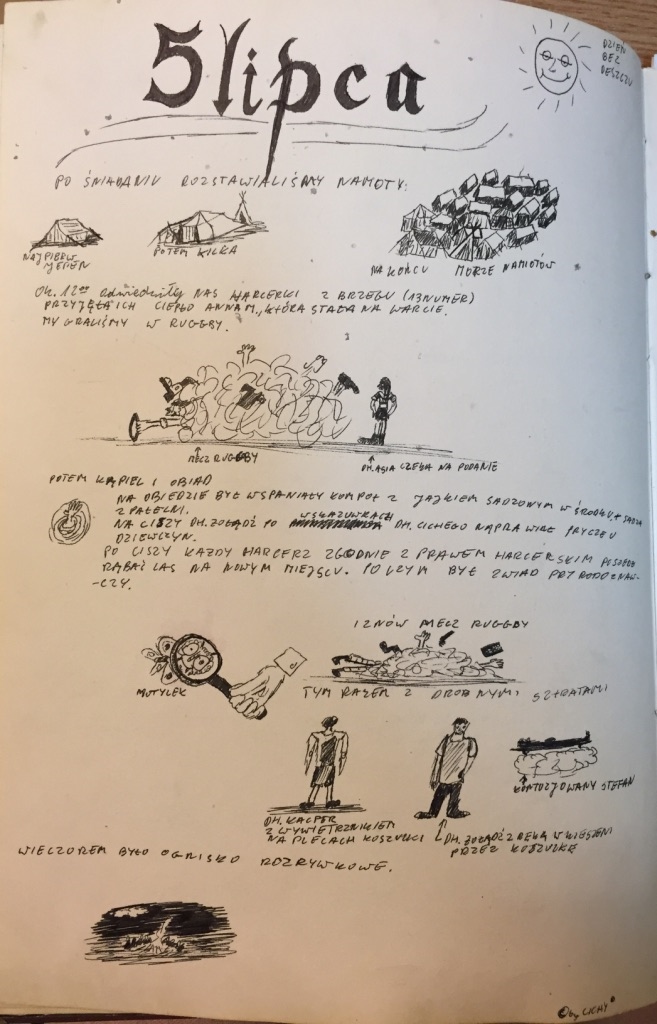 5 lipca
DZIEŃ
BEZ
DESZCZU
PO ŚNIADANIU ROZSTAWIALIŚMY NAMIOTY:
NAJPIERW
JEDEN
POTEM KILKA
NA KOŃCU MORZE NAMIOTÓW
OK. 12⁰⁰ odwiedziły NAS HARCERKI Z BRZEGU (13 NUMER)
PRZYJĘŁA ICH CIEPŁO ANNA M., KTÓRA STAŁA NA WARCIE.
MY GRALIŚMY W RUGGBY.
MECZ RUGGBY
DH. ASIA CZEKA NA PODANIE
POTEM KĄPIEL I OBIAD
NA OBIEDZIE BYŁ WSPANIAŁY KOMPOT Z JAJKIEM SADZONYM W ŚRODKU, +
Z PATELNI.
NA CISZY DH. ŻOŁĄDŹ PO WSKAZÓWKACH DH. CICHEGO NAPRAWIAŁ PRYCZE U
DZIEWCZYN.
PO CISZY KAŻDY HARCERZ ZGODNIE Z PRAWEM HARCERSKIM POSZEDŁ
RĄBAĆ LAS NA NOWYM MIEJSCU. PO CZYM BYŁ ZWIAD PRZYRODOZNAW-
-CZY.
I ZNÓW MECZ RUGGBY
MOTYLEK
TYM RAZEM Z DROBNYMI STRATAMI
KONTUZJOWANY STEFAN
DH. KACPER
Z WYWIETRZNIKIEM
NA PLECACH KOSZULKI
DH. ŻOŁĄDŹ Z RĘKĄ W KIESZENI
PRZEZ KOSZULKĘ
WIECZOREM BYŁO OGNISKO ROZRYWKOWE.
© by CICHY